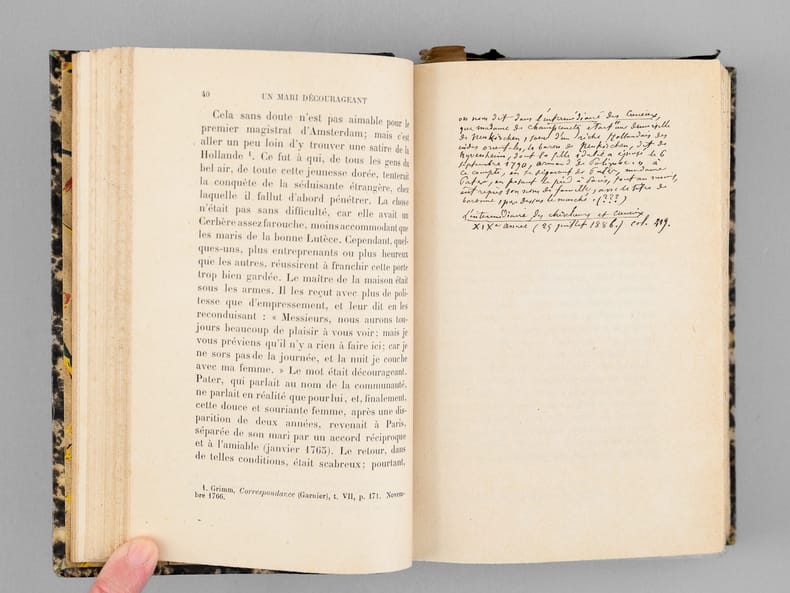 40
UN MARI DÉCOURAGEANT
Cela sans doute n'est pas aimable pour le
premier magistrat d'Amsterdam; mais c'est
aller un peu loin d'y trouver une satire de la
Hollande 1. Ce fut à qui, de tous les gens du
bel air, de toute cette jeunesse dorée, tenterait
la conquête de la séduisante étrangère, chez
laquelle il fallut d'abord pénétrer. La chose
n'était pas sans difficulté, car elle avait un
Cerbère assez farouche, moins accommodant que
les maris de la bonne Lutèce. Cependant, quel-
ques-uns, plus entreprenants ou plus heureux
que les autres, réussirent à franchir cette porte
trop bien gardée. Le maître de la maison était
sous les armes. Il les reçut avec plus de poli-
tesse que d'empressement, et leur dit en les
reconduisant : « Messieurs, nous aurons tou-
jours beaucoup de plaisir à vous voir; mais je
vous préviens qu'il n'y a rien à faire ici; car je
ne sors pas de la journée, et la nuit je couche
avec ma femme. » Le mot était décourageant.
Pater, qui parlait au nom de la communauté,
ne parlait en réalité que pour lui, et, finalement,
cette douce et souriante femme, après une dis-
parition de deux années, revenait à Paris,
séparée de son mari par un accord réciproque
et à l'amiable (janvier 1765). Le retour, dans
de telles conditions, était scabreux; pourtant,
1. Grimm, Correspondance (Garnier), t. VII, p. 171. Novem-
bre 1766.
on nous dit dans l'intermédiaire des Curieux,
que madame de Champcenetz etait une demoiselle
de Neukirchen, soeur d'un riche Hollandais des
indes orientales, le baron de Neukirchen, dit de
Nyvenheim, dont la fille a épousé le 6
septembre 1790, armand de Polignac. » à
ce compte, en se séparant de Pater, madame
Pater, en posant le pied à Paris, aurait
repris son nom de famille, avec le titre de
baronne, par dessus le marché. (???)
L'intermédiaire des chercheurs et curieux
XIXe année (25 juillet 1886.) col. 419.